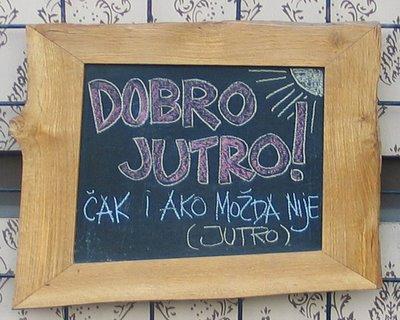 DOBRO
JUTRO!
ČAK I AKO MOŽDA NIJE
(JUTRO)